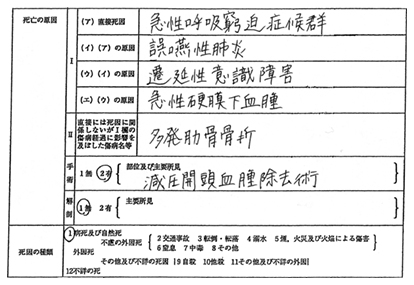 死亡の原因
I
(ア) 直接死因
急性呼吸窮迫症候群
(イ)(ア)の原因
誤嚥性肺炎
(ウ)(イ)の原因
遷延性意識障害
(エ)(ウ)の原因
急性硬膜下血腫
II
直接には死因に関係しないがI欄の傷病経過に影響を及ぼした傷病名等
多発肋骨骨折
手術
1無 2有
部位及び主要所見
減圧開頭血腫除去術
解剖
1無 2有
主要所見
死因の種類
1病死及び自然死
不慮の外因死
2交通事故 3転倒・転落 4溺水 5煙、火災及び火焔による傷害
外因死
6窒息 7中毒 8その他
その他及び不詳の死因
9自殺 10他殺 11その他及び不詳の外因
12不詳の死